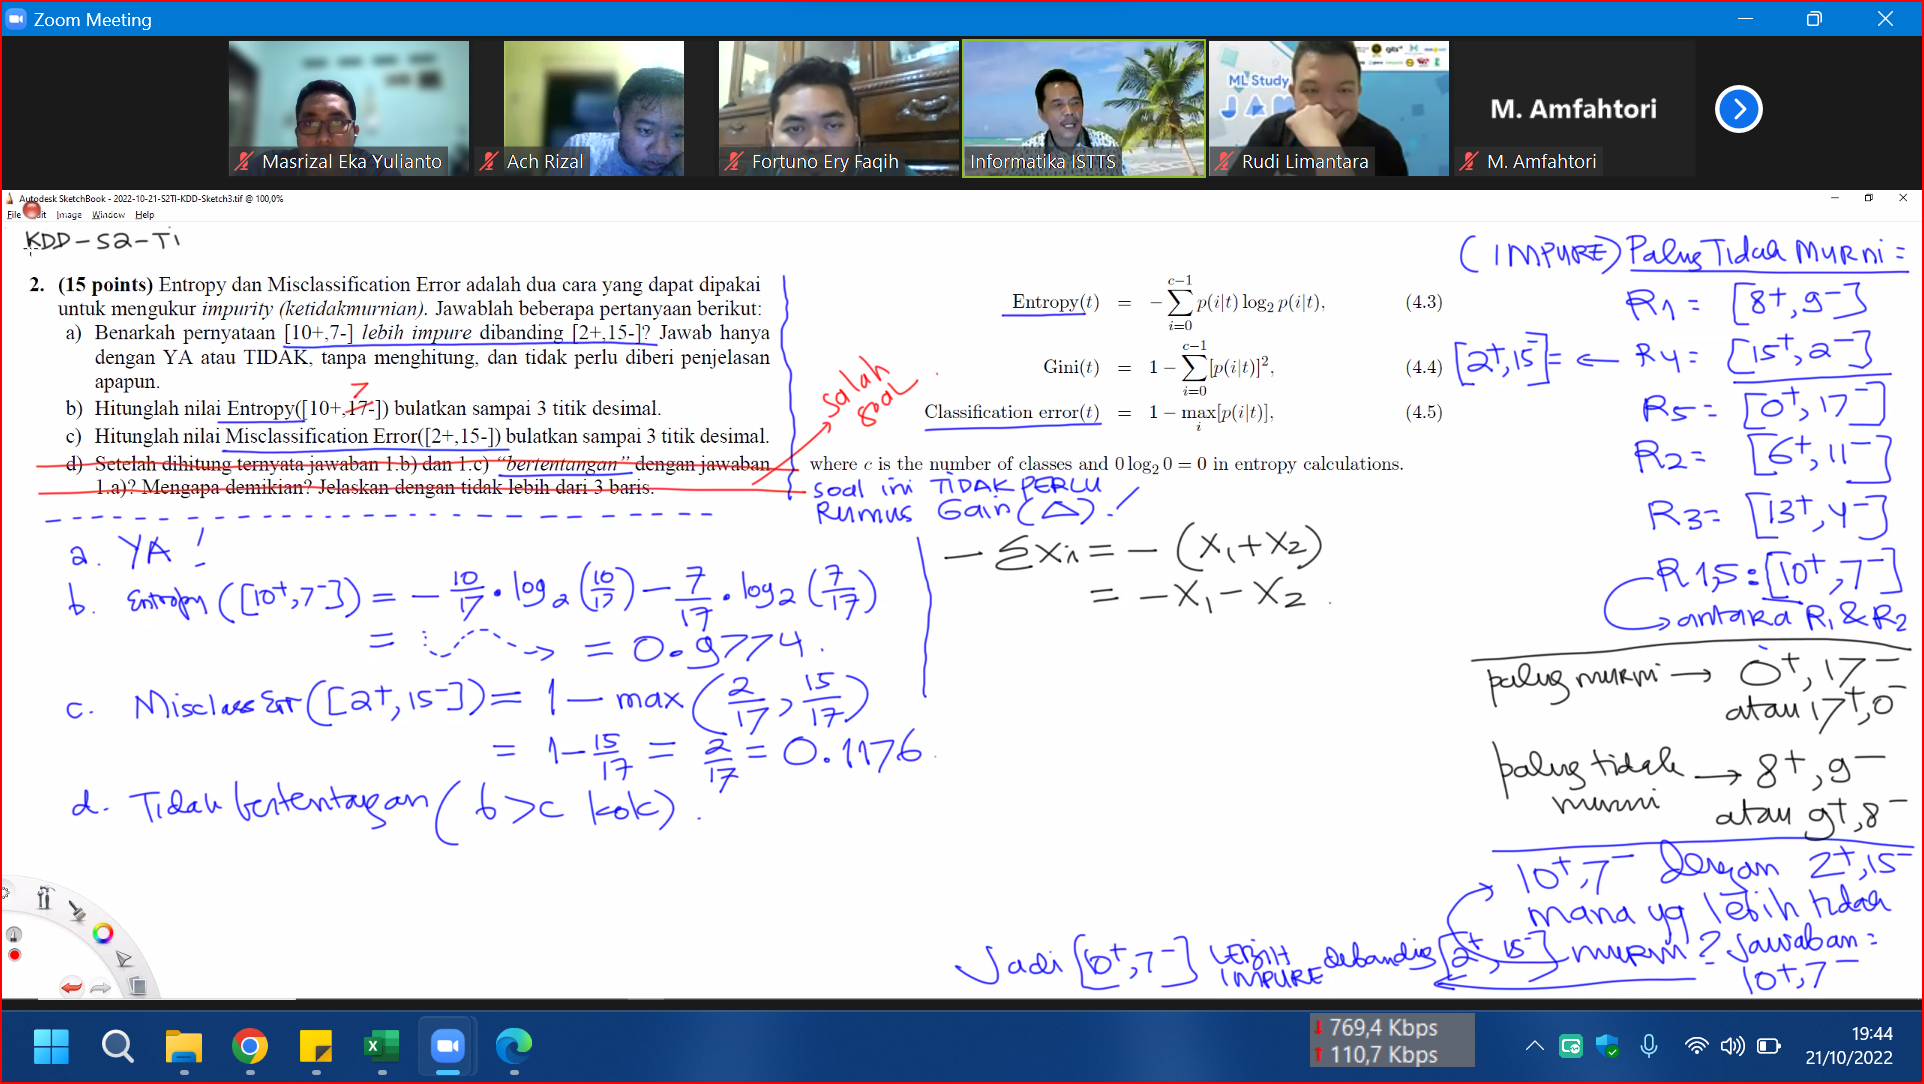 Zoom Meeting
Masrizal Eka Yulianto
Ach Rizal
Fortuno Ery Faqih
Informatika ISTTS
ML Study
JAM
Rudi Limantara
M. Amfahtori
M. Amfahtori
Autodesk SketchBook - 2022-10-21-S2TI-KDD-Sketch3.tif @ 100,0%
File Edit Image Window Help
KDD-S2-Ti
2. (15 points) Entropy dan Misclassification Error adalah dua cara yang dapat dipakai
untuk mengukur impurity (ketidakmurnian). Jawablah beberapa pertanyaan berikut:
a) Benarkah pernyataan [10+,7-] lebih impure dibanding [2+,15-]? Jawab hanya
dengan YA atau TIDAK, tanpa menghitung, dan tidak perlu diberi penjelasan
apapun.
7
b) Hitunglah nilai Entropy([10+,17-]) bulatkan sampai 3 titik desimal.
c) Hitunglah nilai Misclassification Error([2+,15-]) bulatkan sampai 3 titik desimal.
d) Setelah dihitung ternyata jawaban 1.b) dan 1.c) "bertentangan" dengan jawaban
1.a)? Mengapa demikian? Jelaskan dengan tidak lebih dari 3 baris.
salah
soal
Entropy(t) = - ∑_{i=0}^{c-1} p(i|t) log₂ p(i|t), (4.3)
Gini(t) = 1 - ∑_{i=0}^{c-1} [p(i|t)]², (4.4)
Classification error(t) = 1 - max_i [p(i|t)], (4.5)
where c is the number of classes and 0 log₂ 0 = 0 in entropy calculations.
soal ini TIDAK PERLU
Rumus Gain (Δ) !
a. YA !
b. Entropy ([10⁺,7⁻]) = - 10/17 • log₂ (10/17) - 7/17 • log₂ (7/17)
= = 0.9774.
c. MisclassErr([2⁺,15⁻]) = 1 - max (2/17, 15/17)
= 1 - 15/17 = 2/17 = 0.1176
d. Tidak bertentangan ( b > c kok) .
- ∑xi = - (x₁ + x₂)
= - x₁ - x₂ .
(IMPURE) Paling Tidak Murni =
R1 = [8⁺, 9⁻]
[2⁺, 15⁻] = ← R4 = [15⁺, 2⁻]
R5 = [0⁺, 17⁻]
R2 = [6⁺, 11⁻]
R3 = [13⁺, 4⁻]
R1,5 : [10⁺, 7⁻]
antara R1 & R2
paling murni → 0⁺, 17⁻
atau 17⁺, 0⁻
paling tidak murni → 8⁺, 9⁻
atau 9⁺, 8⁻
10⁺, 7⁻ dengan 2⁺, 15⁻
mana yg lebih tidak
murni ? Jawaban =
10⁺, 7⁻
Jadi [10⁺, 7⁻] LEBIH IMPURE dibanding [2⁺, 15⁻]
769,4 Kbps
110,7 Kbps
19:44
21/10/2022